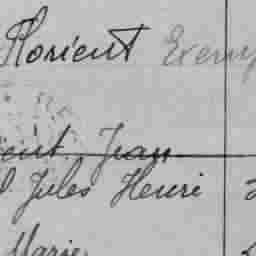 Florient Exemp
ient Jean
Jules Henri
Marie